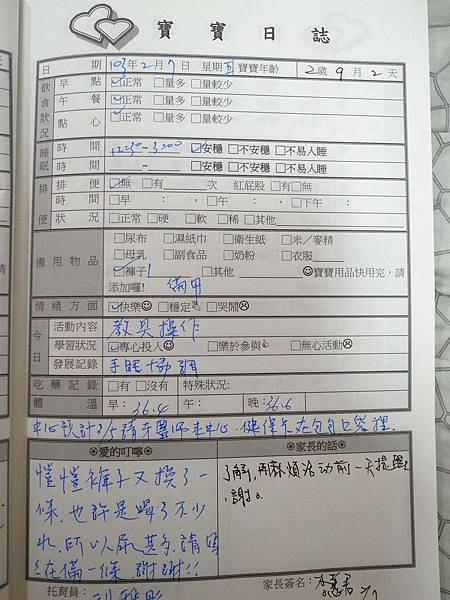 寶寶日誌
日期 103年2月7日 星期五 寶寶年齡 2歲9月2天
飲食狀況 早點 ☑正常 □量多 □量較少
午餐 ☑正常 □量多 □量較少
點心 ☑正常 □量多 □量較少
睡眠 時間 12:30~3:00 ☑安穩 □不安穩 □不易入睡
時間 ~ □安穩 □不安穩 □不易入睡
排便 排便 ☑無 □有 次 紅屁股 □有□無
時間 □早 : , □午: , □下午 :
狀況 □正常 □硬 □軟 □稀 □其他
備用物品 □尿布 □濕紙巾 □衛生紙 □米／麥精
□母乳 □副食品 □奶粉 □衣服
☑褲子1 □其他 ☺寶寶用品快用完，請
添加喔! 備用
情緒方面 ☑快樂☺ □穩定 □哭鬧☹
今日 活動內容 教具操作
學習狀況 ☑專心投入☺ □樂於參與 □無心活動☹
發展記錄 手眼協調
吃藥記錄 □有 □沒有 特殊狀況:
體溫 早: 36.4 午: 晚: 36.6
請牙醫師來中心,健保卡在包包口袋裡.
◎愛的叮嚀◎ ◎家長的話◎
愷愷褲子又換了一
條,也許是喝了不少
水,所以尿甚多,請
在備一條 謝謝!!
了解,再麻煩活动前一天提醒
,謝。
托育員: 家長簽名: